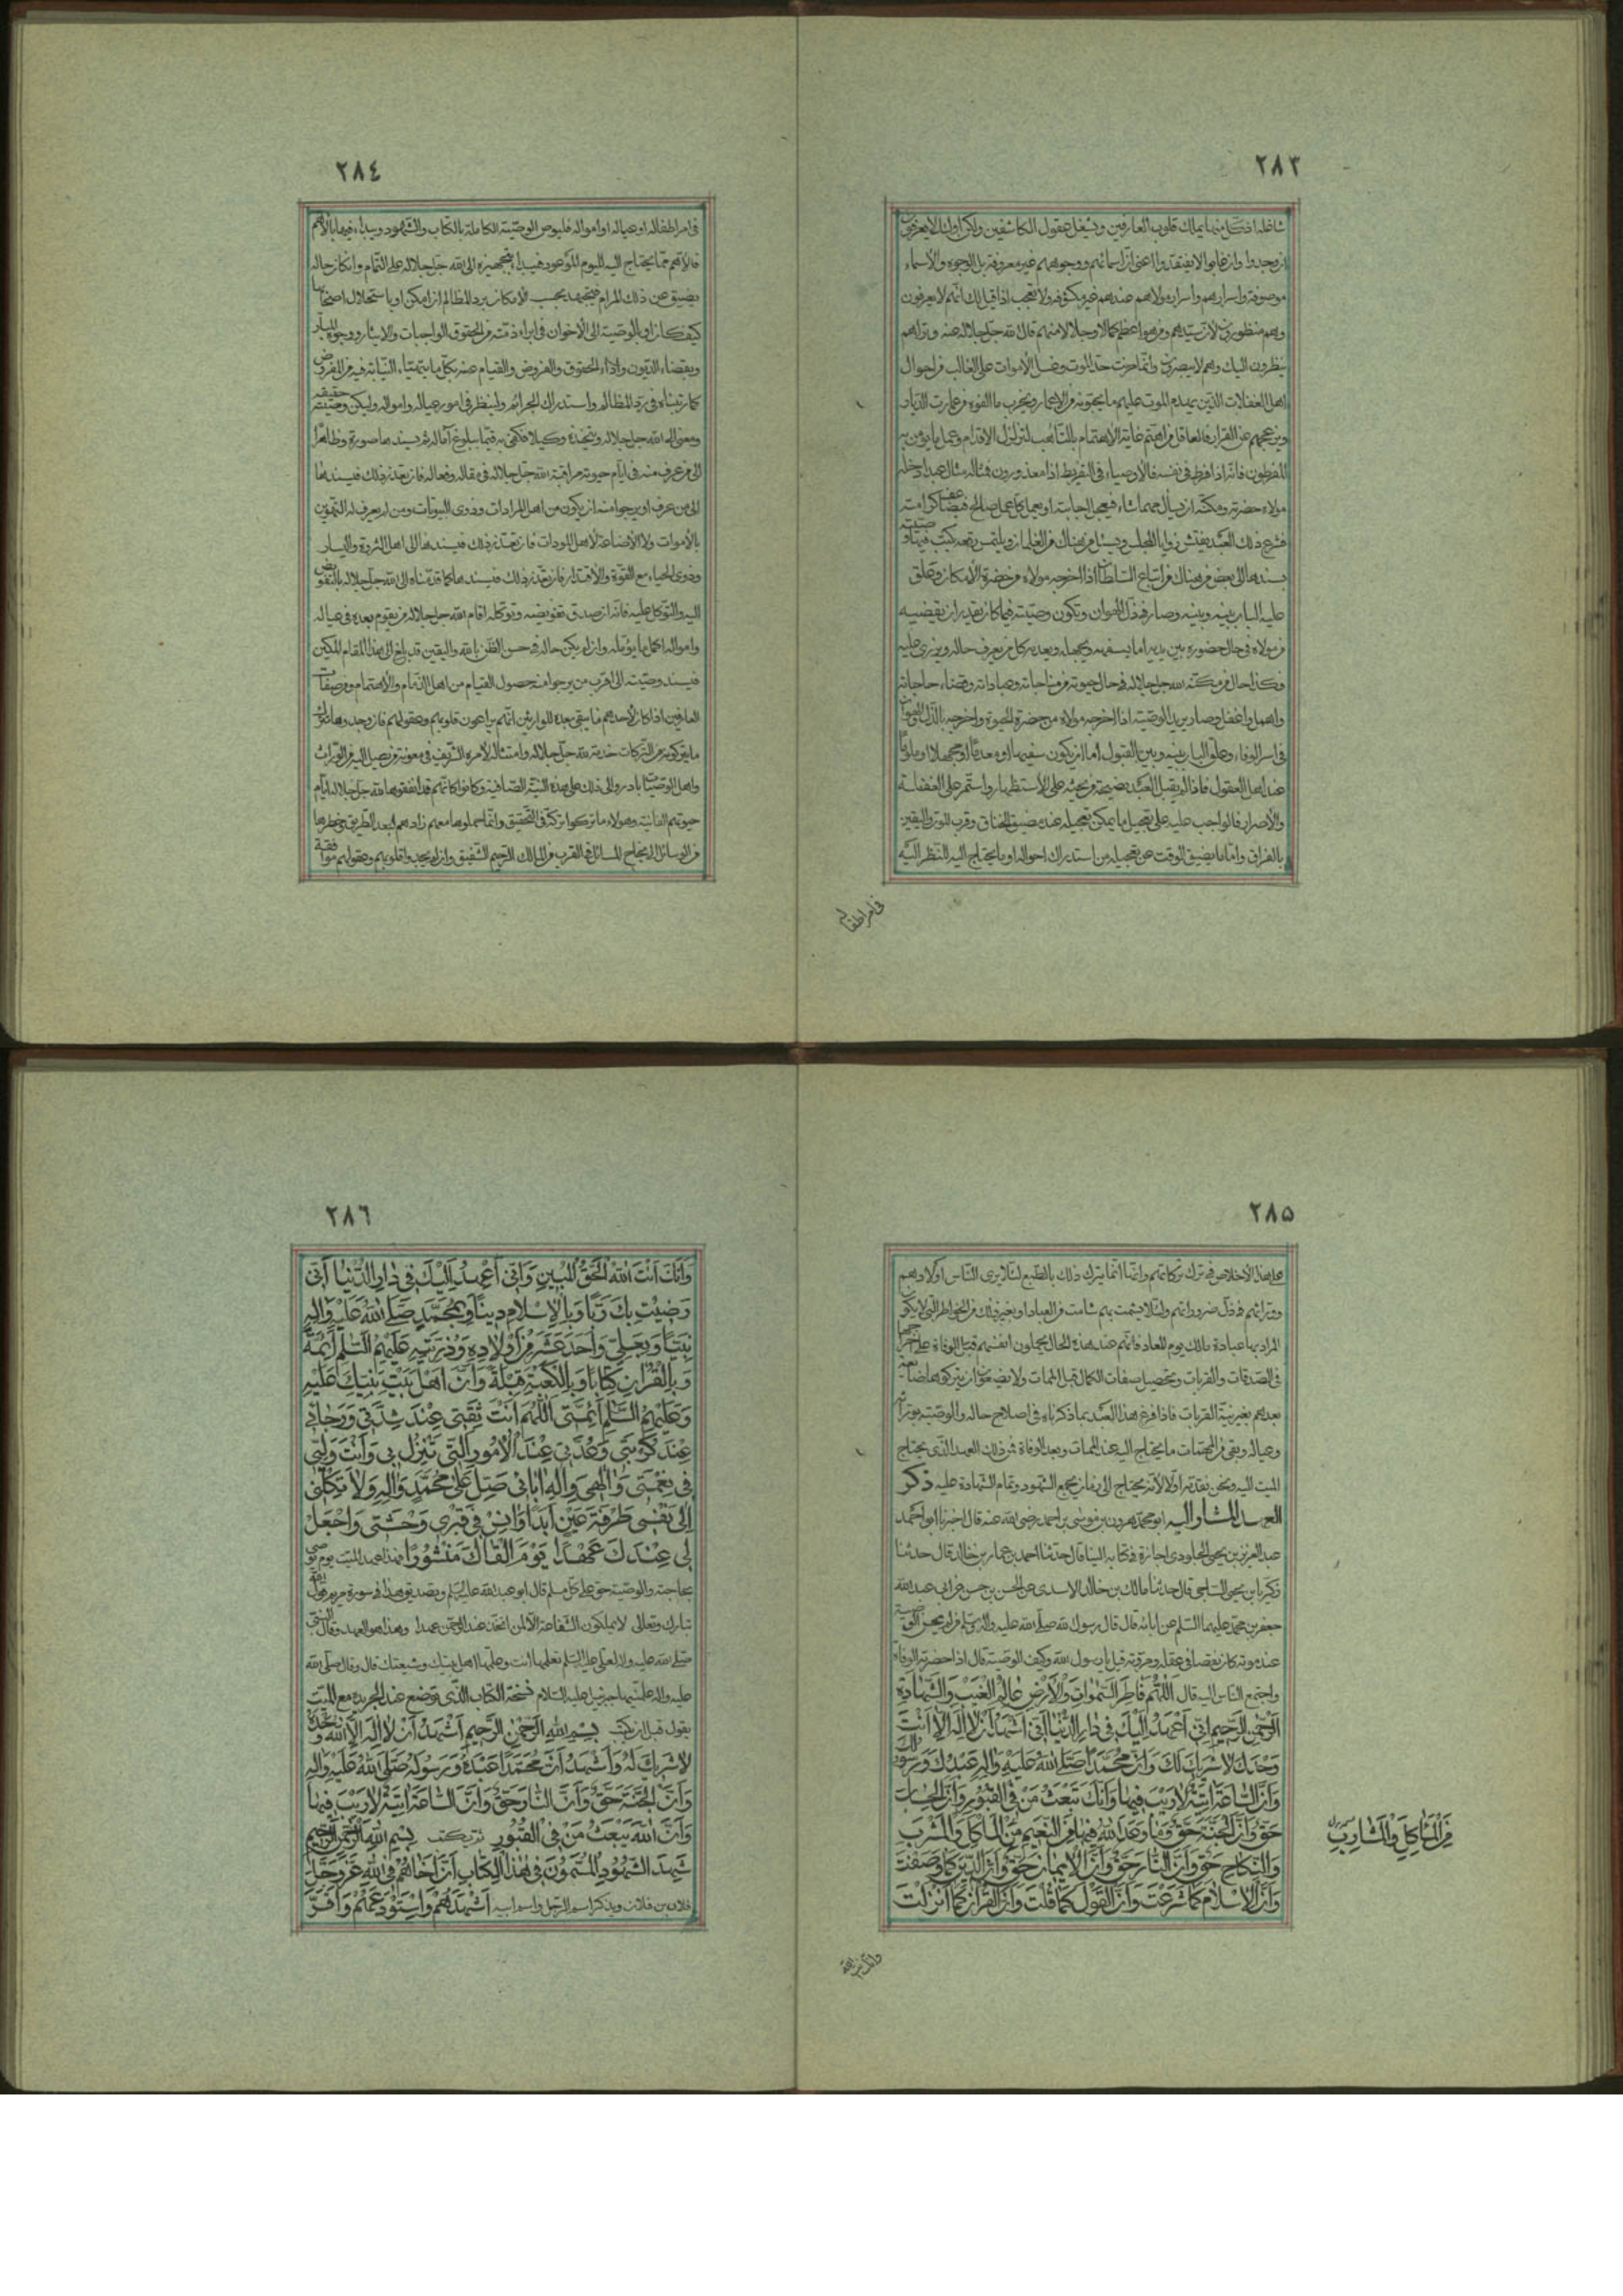 ٢٨٣
شاغلة اذ كل منها يملك قلوب العارفين ويشغل عقول الكاشفين ولكن اولئك لا يعرفون
ان وجدوا وان غابوا لا يفتقدوا اعنى ان اسمائهم ووجوههم غير معروفة بل الوجوه والأسماء
موصوفة واسرارهم واسرار مولاهم عندهم غير مكشوفة ولا تعجب اذا قيل لك انهم لا يعرفون
وهم منظورون قال الله جل جلاله عنه وتراهم
ينظرون اليك وهم لا يبصرون وانما حزت حد الموت وغسل الأموات على الغالب من احوال
اهل الغفلات الذين يهدم الموت عليهم ما يبنونه من الاعمار ويخرب ما الفوه من عمارت الديار
ويزعجهم عن القرار فالعاقل من اهتم غاية الاهتمام بالتأهب لتزلزل الاقدام وعمل ما يؤمن به
المفرطون فانه اذا فرط في نفسه فالأوصياء في التفريط اذا معذورون فمثاله مثال عبد ادخله
مولاه حضرته ومكنه ان يسأل مهما شاء فيعجل اجابته او يعمل كل عمل صالح فيضاعف كرامته
فشرع ذلك العبد يفتش زوايا المجلس ويسئل من هناك من الغلمان ويلتمس رقعة يكتب فيها وصيته
يسندها الى بعض من هناك من اتباع السلطان اذا اخرجه مولاه من حضرة الأمكان وتغلق
عليه الباب بينه وبينه وصار في ذل الهوان وتكون وصيته فيما كان يقدر ان يقضيه
من مولاه في حال حضوره بين يديه اما يسفهه ويجهله ويعديه كل من يعرف حاله ويزرى عليه
فكذا حال من مكنه الله جل جلاله في حال حيوته من مناجاته وعباداته وقضاء حاجاته
واهمل واغفل وصار يريد الوصية اذا اخرجه مولاه من حضرة الحيوة واخرجه بالذل والهوان
في اسر الوفاء وغلق الباب بينه وبين القبول اما ان يكون سفيها او معدبا او مجهلا او ملوما
عند اهل العقول فاذا لم يقبل العبد نصيحة من يحثه على الأستظهار واستمر على الغفلة
والأصرار فالواجب عليه على تعجيل ما يمكن تعجيله عند ضيق الخناق وقرب الموت واليقين
بالفراق واما ما يضيق الوقت عن تعجيله من استدراك احواله او ما يحتاج اليه للنظر اليه
في امر اطفاله
٢٨٤
في امر اطفاله او عياله او امواله فليوص الوصية الكاملة بالكتاب والشهود ويبدأ فيها بالأهم
فالأهم مما يحتاج اليه لليوم الموعود فيبدأ بتجهيزه الى الله جل جلاله على التمام وان كان حاله
يضيق عن ذلك المرام فيجتهد بحسب الأمكان برد المظالم ان امكن او باستحلال اصحابها
كيف كان او بالوصية الى الأخوان في ابراء ذمته من الحقوق الواجبات والايثار ووجوه المبار
وبقضاء الديون واداء الحقوق والفروض والقيام عنه بكل ما يتهيأ النيابة فيه من المفروض
كما رتبناه في رد المظالم واستدراك الجرائم ولينظر في امور عياله وامواله وليكن وصيته حقيقة
ومعنى الى الله جل جلاله ويتخذه وكيلا فكفى به فيما يبلوغ آماله ثم يسندها صورة وظاهرا
الى من عرف منه في ايام حيوته مراقبة الله جل جلاله في مقاله وفعاله فان تعذر ذلك فيسندها
الى من عرف او يرجو منه ان يكون من اهل المرادات وذوى البيوتات ومن لم يعرف له التهوين
بالأموات ولا الأضاعة لاهل المودات فان تعذر ذلك فيسندها الى اهل الثروة واليسار
وذوى الحياء مع القوة والأقتدار فان تعذر ذلك فيسندها كما قدمناه الى الله جل جلاله بالتفويض
اليه والتوكل عليه فانه ان صدق تفويضه وتوكله اقام الله جل جلاله من يقوم بعده في عياله
وامواله اكمل ما يؤمله وان لم يكن حاله في حسن الظن بالله واليقين قد بلغ الى هذا المقام المكين
فيسند وصيته الى اقرب من يرجو منه حصول القيام من اهل الذمام والأهتمام ومن صفات
العارفين اذا كان لأحدهم ما يبقى بعده للوارثين انهم يراعون قلوبهم وعقولهم فان وجدوها تترك
ما يتركونه من التركات خدمة لله جل جلاله وامتثالا لأمره الشريف في معونة من يصل اليه من الوراث
واهل الوصيا بادروا الى ذلك على هذه النية الصافية وكانوا كانهم قد انفقوها لله جل جلاله ايام
حيوتهم الفانية وهولاء ما تركوا تركة في التحقيق وانما حملوها معهم زادهم لبعد الطريق وخطرها
من الوسائل لنجاح المسائل في القرب من المالك الرحيم الشفيق وان لم يجدوا قلوبهم وعقولهم موافقة
٢٨٥
على هذا الأخلاص في ترك تركاتهم وانما انما يترك ذلك بالطبع لئلا يرى الناس اولادهم
وقرابتهم في ذل ضروراتهم ولئلا يشمت بهم شامت من العباد او بغير ذلك من الخواطر التي لا يكون
المراد بها عبادة مالك يوم المعاد فانهم عند هذه الحال يجملون انفسهم قبل الوفاة على اخراجها
في الصدقات والقربات وتحصيل صفات الكمال قبل الممات ولا يضيعون ان يتركوها ضايعة
بعدهم بغير نية القربات فاذا فرغ هذا العبد بما ذكرناه في اصلاح حاله والوصية بوراثه
وعياله وبقى من المهمات ما يحتاج اليه عند الممات وبعد الوفاة فمن ذلك العهد الذي يحتاج
الميت اليه ونحن نقدمه اولا لأنه يحتاج الى زمان يجمع الشهود وتمام الشهادة عليه ذكر
العهد المشار اليه ابو محمد هرون بن موسى بن احمد رضي الله عنه قال اخبرنا ابو احمد
عبد العزيز بن يحيى الجلودى اجازة في كتابه الينا قال حدثنا احمد بن عمار بن خالد قال حدثنا
زكريا بن يحيى الساجي قال حدثنا مالك بن خالد الاسدى عن الحسن بن عن ابى عبد الله
جعفر بن محمد عليهما السلم عن ابائه قال قال رسول الله صلى الله عليه واله وسلم من لم يحسن الوصية
عند موته كان نقصا في عقله ومروته قيل يا رسول الله وكيف الوصية قال اذا حضرته الوفاة
واجتمع الناس اليه قال اللهم فاطر السموات والأرض عالم الغيب والشهادة
الرحمن الرحيم انى اعهد اليك في دار الدنيا انى اشهد ان لا اله الا انت
وحدك لا شريك لك وان محمدا صلى الله عليه واله عبدك ورسولك
وان الساعة اتية لا ريب فيها وانك تبعث من في القبور وان الحساب
حق وان الجنة حق وما وعد الله فيها من النعيم من الماكل والمشرب
من الماكل والمشارب
والنكاح حق وان النار حق وان الإيمان حق وان الدين كما وصفت
وان الاسلام كما شرعت وان القول كما قلت وان القران كما انزلت
وانك انت الله
٢٨٦
وانك انت الله الحق المبين وانى اعهد اليك في دار الدنيا انى
رضيت بك ربا وبالإسلام دينا وبمحمد صلى الله عليه واله
نبيا وبعلي واحد عشر من اولاده وذريته عليهم السلم ائمة
وبالقران كتابا وبالكعبة قبلة وان اهل بيت نبيك عليه
وعليهم السلم ائمتى اللهم انت ثقتى عند شدتى ورجائى
عند كربتى وعدتى عند الأمور التي تنزل بى وانت وليى
في نعمتى والهى واله ابائى صل على محمد واله ولا تكلنى
الى نفسى طرفة عين ابدا وانس في قبرى وحشتى واجعل
لى عندك عهدا يوم القاك منشورا فهذا عهد الميت يوم يوصى
بحاجته والوصية حق على كل مسلم قال ابو عبد الله عليه السلم وتصديق هذا في سورة مريم قول الله
تبارك وتعالى لا يملكون الشفاعة الا من اتخذ عند الرحمن عهدا وهذا هو العهد وقال النبى
صلى الله عليه واله لعلى عليه السلم تعلمها انت وعلمها اهل بيتك وشيعتك قال وقال صلى الله
عليه واله علمنيها جبرئيل عليه السلام نسخة الكتاب الذى توضع عند الجريدة مع الميت
يقول قبل ان يكتب بسم الله الرحمن الرحيم اشهد ان لا اله الا الله وحده
لا شريك له واشهد ان محمدا عبده ورسوله صلى الله عليه واله
وان الجنة حق وان النار حق وان الساعة اتية لا ريب فيها
وان الله يبعث من في القبور ثم يكتب بسم الله الرحمن الرحيم
شهد الشهود المسمون في هذا الكتاب ان اخاهم في الله عز وجل
فلان بن فلان ويذكر اسم الرجل واسم ابيه اشهدهم واستودعهم واقر